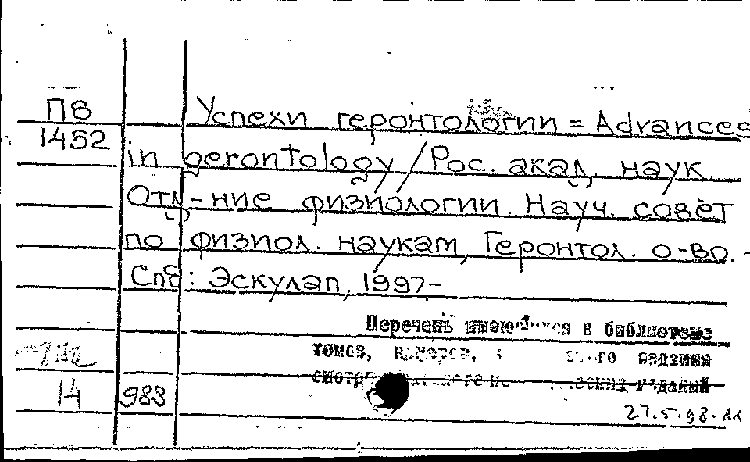 ПВ Успехи геронтологии = Advances
1452 in gerontology / Рос. акад. наук
Отд-ние физиологии. Науч. совет
по физиол. наукам, Геронтол. о-во. -
Спб: Эскулап, 1997-
Перечень имеющихся в библиотеке
томов,
14 983
27.5.98